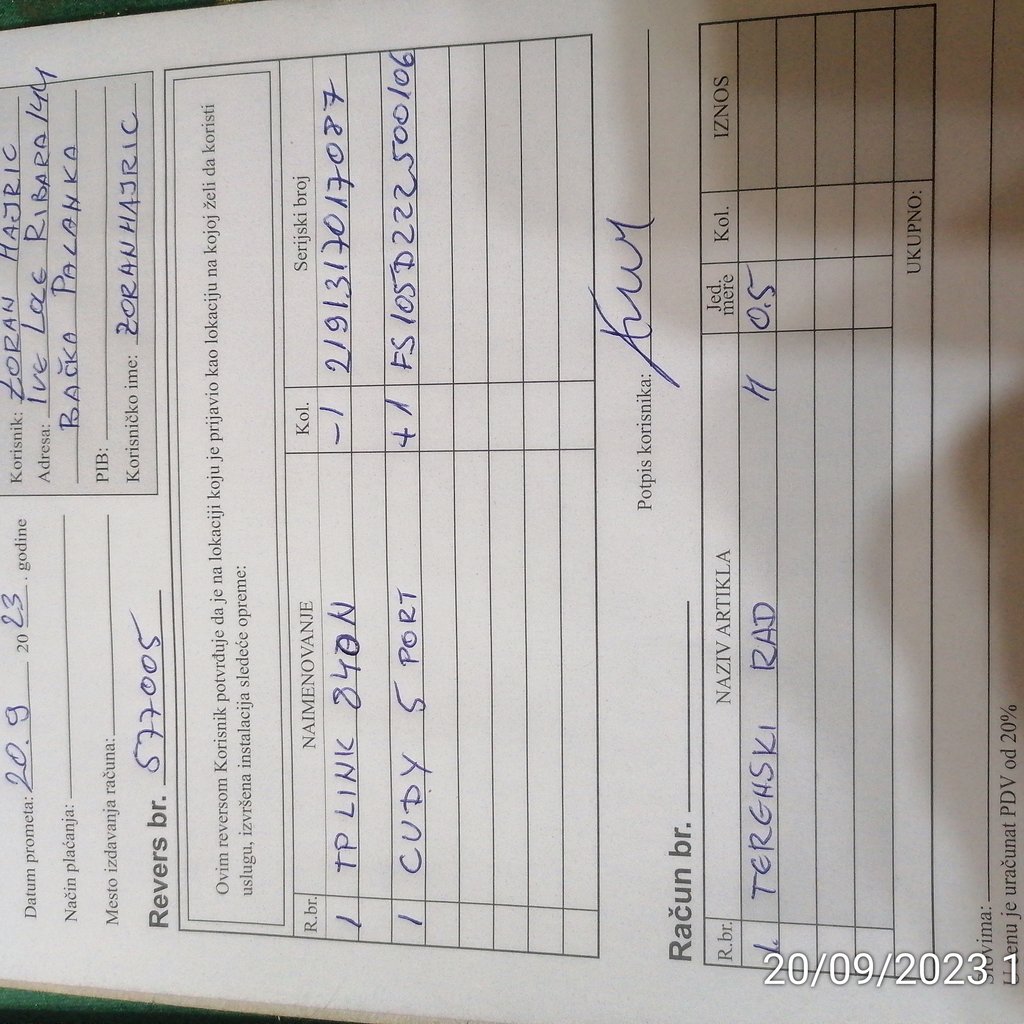 Korisnik: ZORAN HAJRIC
Adresa: IVE LOLE RIBARA 144
BAČKA PALANKA
PIB:
Korisničko ime: ZORANHAJRIC
Datum prometa: 20.9 2023. godine
Način plaćanja:
Mesto izdavanja računa:
Revers br. 577005
Ovim reversom Korisnik potvrđuje da je na lokaciji koju je prijavio kao lokaciju na kojoj želi da koristi
uslugu, izvršena instalacija sledeće opreme:
R.br. NAIMENOVANJE Kol. Serijski broj
1 TP LINK 840N -1 2191317017087
1 CUDY 5 PORT +1 FS105D222500106
Potpis korisnika:
Račun br.
R.br. NAZIV ARTIKLA Jed. mere Kol. IZNOS
1. TERENSKI RAD H 0.5
UKUPNO:
Slovima:
U cenu je uračunat PDV od 20%
20/09/2023 1